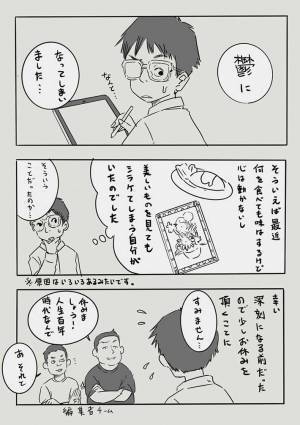 鬱に
なってしまい
ました…
なんと…
そういえば最近
何を食べても味はするけど
心は動かないし
美しいものを見ても
シラケてしまう自分が
いたのでした
そういう
ことだったのか…
※原因はいろいろあるみたいです。
幸い
深刻になる前だった
ので少しお休みを
頂くことに
すみません…
休みま
しょう!
人生百年
時代なんで
あ それで
編集者チーム